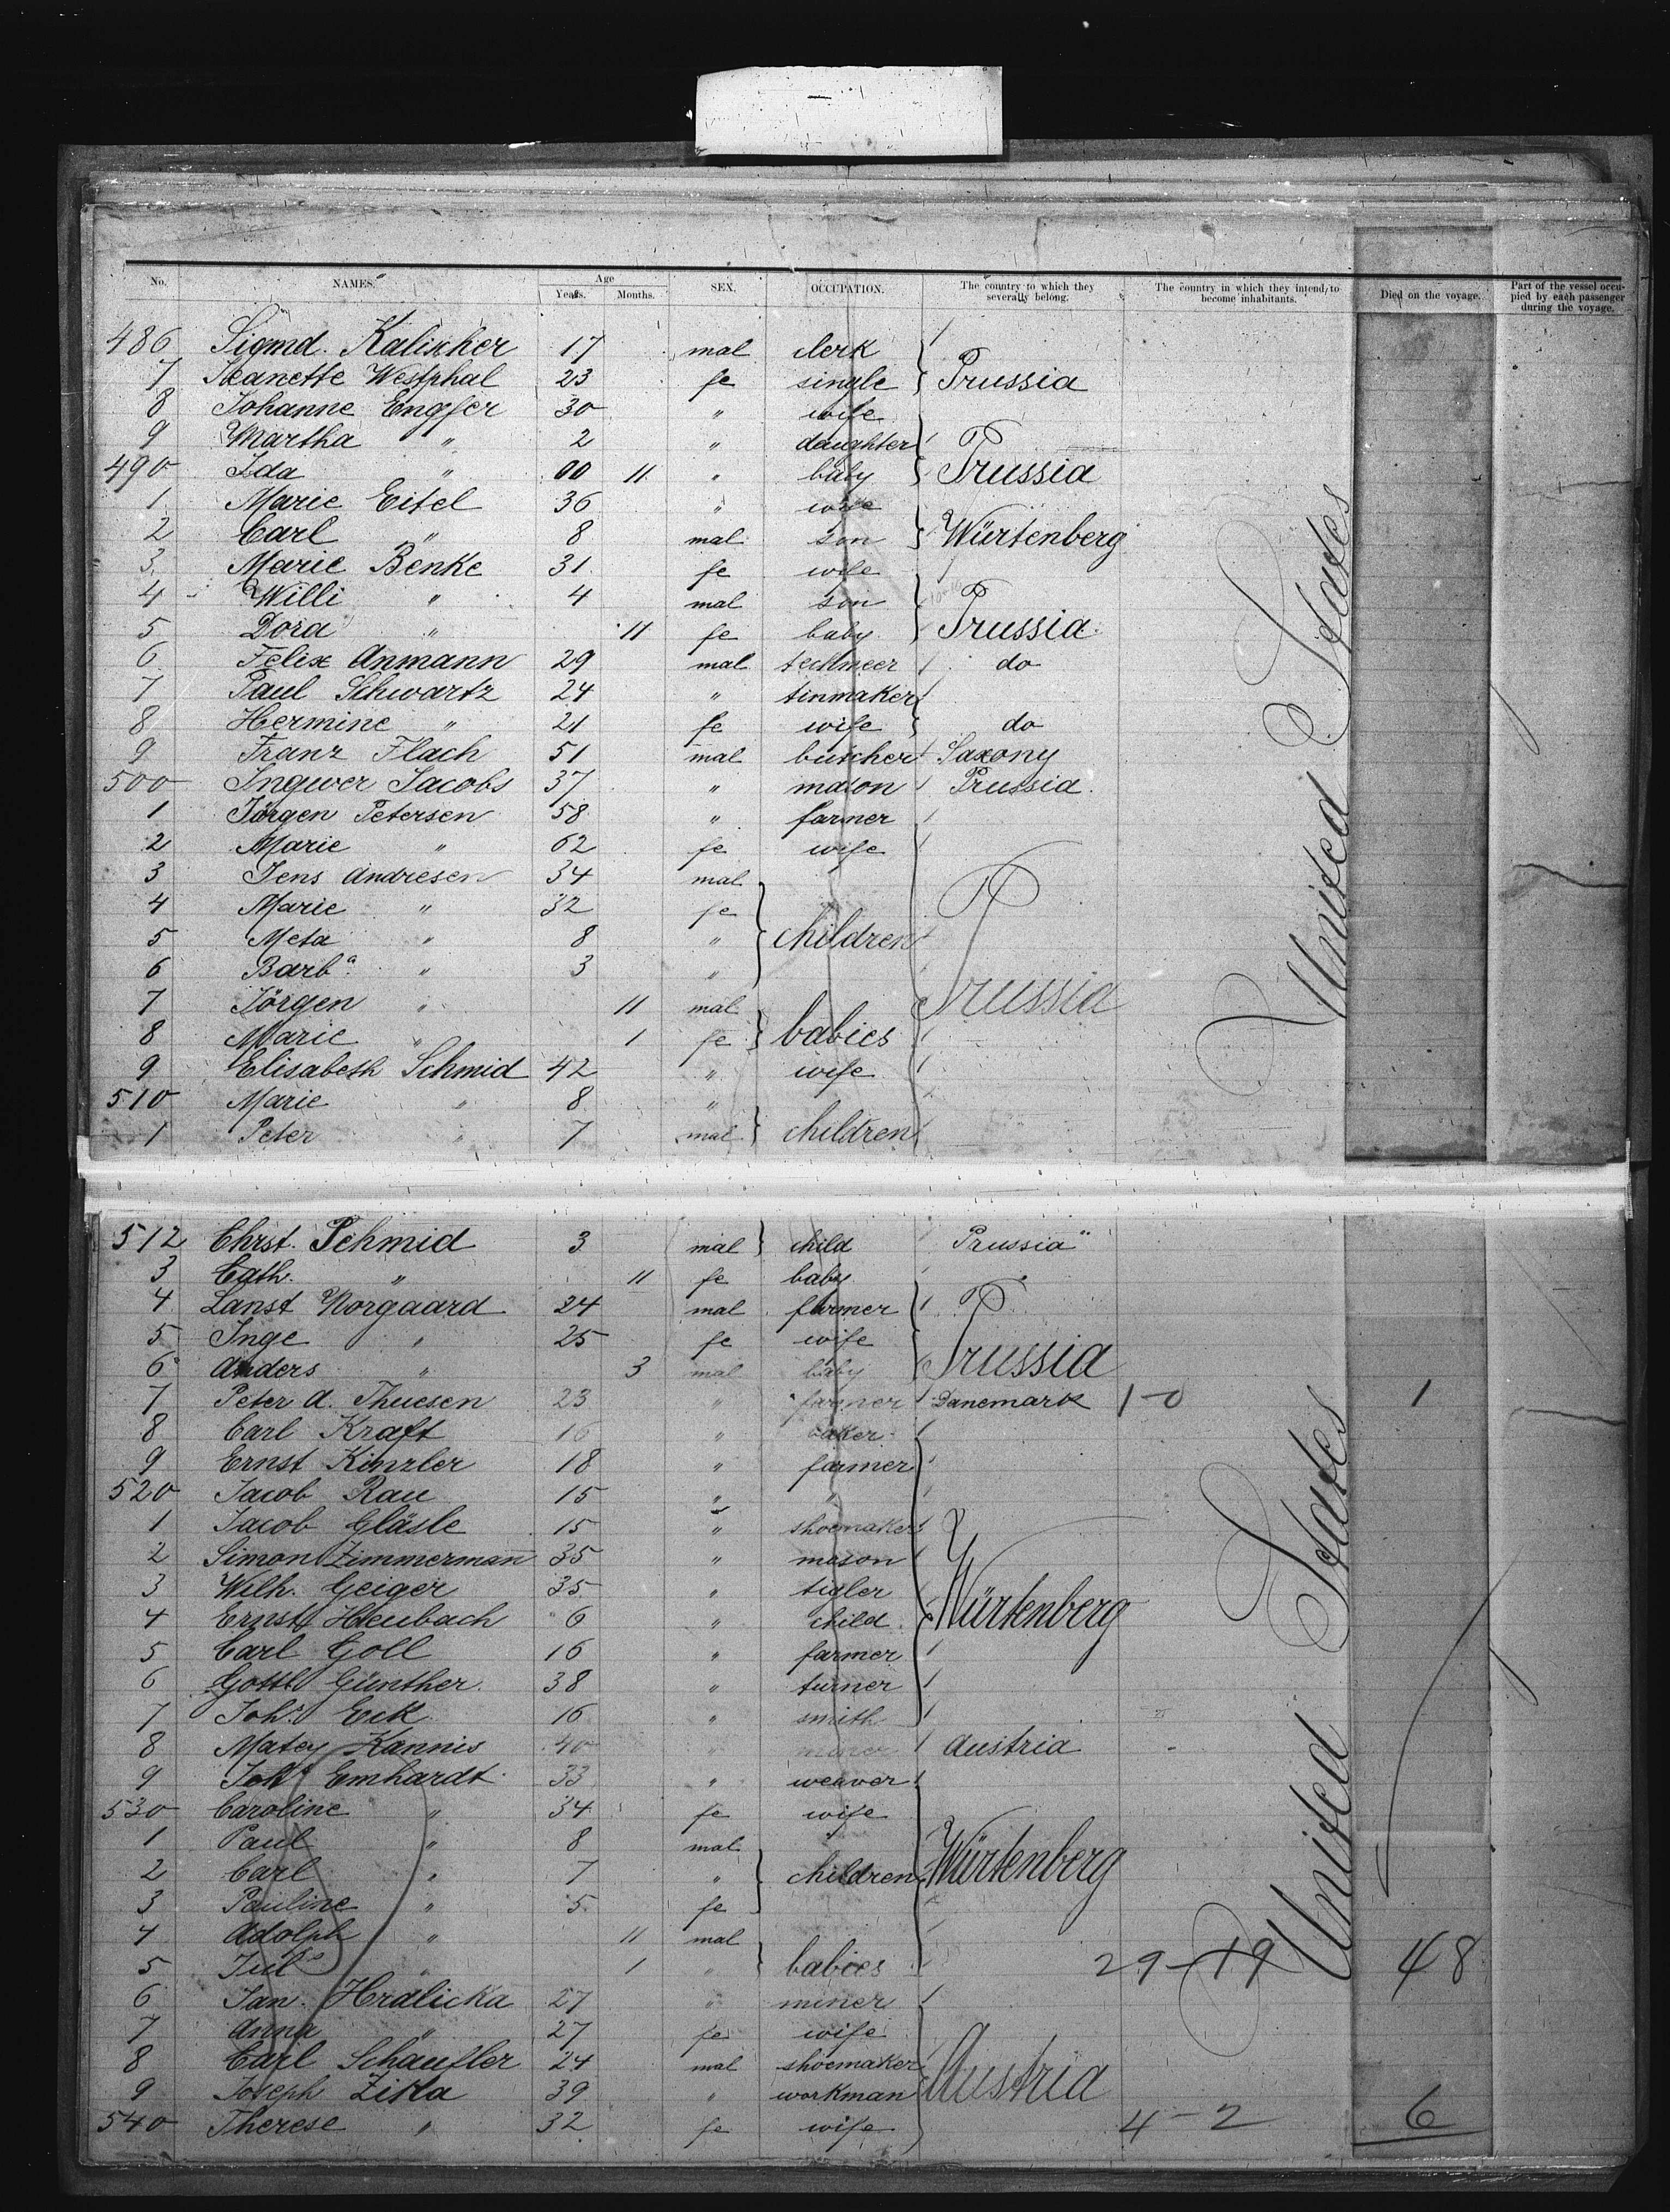 No. NAMES. Age Years. Months. SEX. OCCUPATION. The country to which they severally belong. The country in which they intend to become inhabitants. Died on the voyage. Part of the vessel occupied by each passenger during the voyage.
486 Sigmd. Kalischer 17 mal clerk
7 Jeanette Westphal 23 fe single } Prussia
8 Johanne Engfer 30 " wife
9 Martha " 2 " daughter
490 Ida " 00 11 " baby } Prussia
1 Marie Eitel 36 " wife
2 Carl " 8 mal son } Würtenberg
3 Marie Benke 31 fe wife
4 Willi " 4 mal son
5 Dora " 11 fe baby } Prussia
6 Felix Anmann 29 mal do
7 Paul Schwartz 24 " tinmaker
8 Hermine " 21 fe wife } do
9 Franz Flach 51 mal butcher Saxony
500 Ingwer Jacobs 37 " mason Prussia
1 Jörgen Petersen 58 " farmer
2 Marie " 62 fe wife
3 Jens Andresen 34 mal
4 Marie " 32 fe
5 Meta " 8 " } children
6 Barba " 3 "
7 Jörgen " 11 mal Prussia
8 Marie " 1 fe } babies
9 Elisabeth Schmid 42 " wife
510 Marie " 8 "
1 Peter " 7 mal } children
United States
512 Chrst. Schmid 3 mal } child Prussia "
3 Cath. " 11 fe baby
4 Lanst Norgaard 24 mal farmer
5 Inge " 25 fe wife
6 Anders " 3 mal baby Prussia
7 Peter A. Thuesen 23 " farmer Danemark 1-0 1
8 Carl Kraft 16 " baker
9 Ernst Kinzler 18 " farmer
520 Jacob Rau 15 " "
1 Jacob Gläsle 15 " shoemaker
2 Simon Zimmermann 35 " mason
3 Wilh. Geiger 35 " tigler
4 Ernst Heubach 6 " child Würtenberg
5 Carl Goll 16 " farmer
6 Gottl. Günther 38 " turner
7 Johs. Eck 16 " smith
8 Matey Kannis 40 " miner Austria
9 Johs Emhardt 33 " weaver
530 Caroline " 34 fe wife
1 Paul " 8 mal
2 Carl " 7 " } children Würtenberg
3 Pauline " 5 fe
4 Adolph " 11 mal
5 Juls " 1 " } babies 29-19 48
6 Jan. Hralicka 27 " miner
7 Anna " 27 fe wife
8 Carl Schaufler 24 mal shoemaker
9 Joseph Zika 39 " workman Austria
540 Therese " 32 fe wife 4-2 6
United States